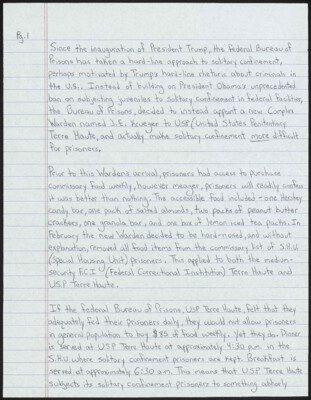 Pg. 1
Since the inauguration of President Trump, the Federal Bureau of
Prisons has taken a hard-line approach to solitary confinement,
perhaps motivated by Trump's hard-line rhetoric about criminals in
the U.S.. Instead of building on President Obama's unprecedented
ban on subjecting juveniles to solitary confinement in federal facilities,
the Bureau of Prisons, decided to instead appoint a new Complex
Warden named J.E. Krueger to USP (United States Penitentiary
Terre Haute, and actually make solitary confinement more difficult
for prisoners.
Prior to this Warden's arrival, prisoners had access to purchase
commissary food weekly, however meager, prisoners will readily
it was better than nothing. The accessible food included - one Hershey
candy bar, one pack of salted almonds, two packs of peanut butter
crackers, one granola bar, and one box of lemon iced tea packs. In
February the new Warden decided to be hard-nosed, and without
explanation, removed all food items from the commissary list of S.H.U
(Special Housing Unit) prisoners. This applied to both the medium-
security F.C.I (Federal Correctional Institution) Terre Haute and
USP Terre Haute.
If the Federal Bureau of Prisons, USP Terre Haute, felt that they
adequately fed their prisoners daily, they would not allow prisoners
in general population to buy $85 of food weekly. Yet they do. Dinner
is served at USP Terre Haute at approximately 4:30 p.m. in the
S.H.U where solitary confinement prisoners are kept. Breakfast is
served at approximately 6:30 a.m. This means that USP Terre Haute
subjects its solitary confinement prisoners to something utterly